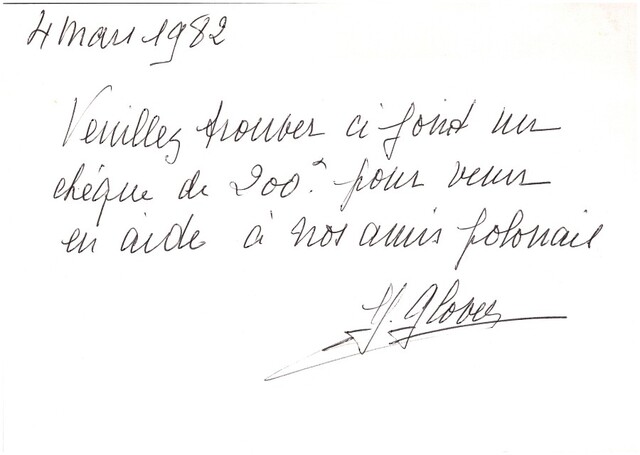 4 Mars 1982
Veuillez trouver ci joint un
chèque de 200F pour venir
en aide à nos amis polonais
Glover